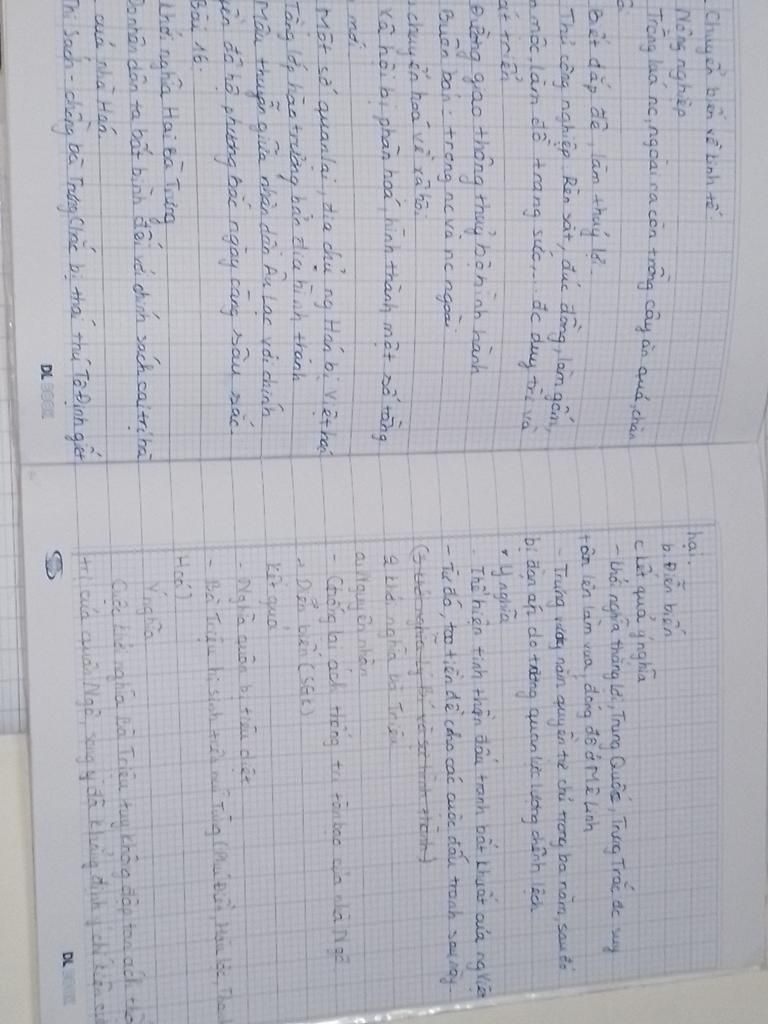 Chuyển biến về kinh tế
Nông nghiệp
Trồng lúa nc, ngoài ra còn trồng cây ăn quả, chăn
Biết đắp đê, làm thuỷ lợi
Thủ công nghiệp: Rèn sắt, đúc đồng, làm gốm,
mộc, làm đồ trang sức,... đc duy trì và
át triển
Đường giao thông thuỷ bộ hình thành
Buôn bán: trong nc và nc ngoài
chuyển hoá về xã hội
xã hội bị phân hoá, hình thành một số tầng
mới
Một số quan lại, địa chủ ng Hán bị Việt hoá
Tầng lớp hào trưởng bản địa hình thành
Mâu thuẫn giữa nhân dân Âu Lạc với chính
yền đô hộ phương Bắc ngày càng sâu sắc.
Bài 16.
khởi nghĩa Hai Bà Trưng
Do nhân dân ta bất bình đối với chính sách cai trị hà
của nhà Hán
Thi Sách - chồng bà Trưng Trắc bị thái thú Tô Định giết
DL
hại.
b. Diễn biến
c. kết quả ý nghĩa
- khởi nghĩa thắng lợi, Trưng Trắc đc suy
tôn lên làm vua, đóng đô ở Mê Linh
- Trưng vương nắm quyền tự chủ trong ba năm, sau đó
bị đàn áp do tương quan lực lượng chênh lệch
* Ý nghĩa
- Thể hiện tinh thần đấu tranh bất khuất của ng Việt
- Từ đó, tạo tiền đề cho các cuộc đấu tranh sau này
2. khởi nghĩa Bà Triệu
a. Nguyên nhân
- Chống lại ách thống trị tàn bạo của nhà Ngô
2. Diễn biến (SGK)
Kết quả
- Nghĩa quân bị tiêu diệt
- Bà Triệu hi sinh trên núi Tùng (Phú Điền, Hậu Lộc, Thanh
Hoá)
Ý nghĩa
Cuộc khởi nghĩa Bà Triệu tuy không đập tan ách thố
trị của quân Ngô, song đã khẳng định ý chí kiên cư
DL